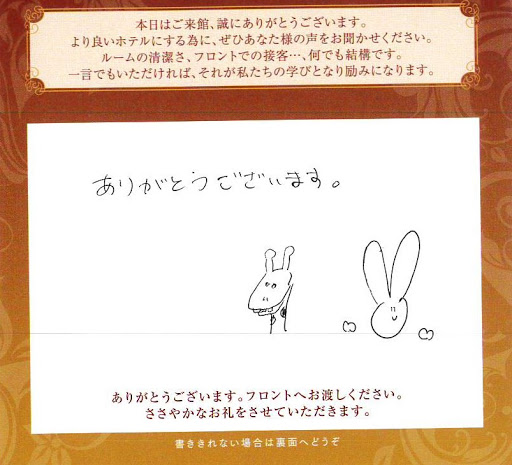 本日はご来館、誠にありがとうございます。
より良いホテルにする為に、ぜひあなた様の声をお聞かせください。
ルームの清潔さ、フロントでの接客…、何でも結構です。
一言でもいただければ、それが私たちの学びとなり励みになります。
ありがとうございます。
ありがとうございます。フロントへお渡しください。
ささやかなお礼をさせていただきます。
書ききれない場合は裏面へどうぞ